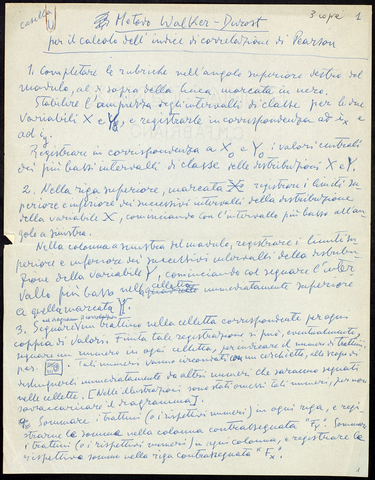 casella
3 copie 1
Metodo Walker-Durost
per il calcolo dell'indice di correlazione di Pearson
1. Completare le rubriche nell'angolo superiore destro del
modulo, al di sopra della linea marcata in nero.
Stabilire l'ampiezza degli intervalli di classe per le due
variabili X e Y, e registrarle in corrispondenza ad ix e
ad iy.
Registrare in corrispondenza a X0 e Y0 i valori centrali
dei più bassi intervalli di classe delle distribuzioni X e Y.
2. Nella riga superiore, marcata X registrare i limiti su-
periore e inferiore dei successivi intervalli della distribuzione
della variabile X, cominciando con l'intervallo più basso all'an-
golo a sinistra.
Nella colonna a sinistra del modulo, registrare i limiti su-
periore e inferiore dei successivi intervalli della distribu-
zione della variabile Y, cominciando col segnare l'inter
vallo più basso nella celletta immediatamente superiore
a quella marcata Y.
3. Segnare un trattino nella celletta corrispondente per ogni
coppia di valori. Finita tale registrazione si può, eventualmente,
segnare un numero in ogni celletta, per indicare il numero di trattini,
per es. Tali numeri vanno circondati con un cerchietto, allo scopo di
distinguerli immediatamente da altri numeri che saranno segnati
nelle cellette. [Nelle illustrazioni sono stati omessi tali numeri, per non
sovraccaricare il diagramma].
Sommare i trattini (o i rispettivi numeri) in ogni riga, e regi
strarne la somma nella colonna contrassegnata "Fy". Sommare
i trattini (o i rispettivi numeri) in ogni colonna, e registrare la
rispettiva somma nella riga contrassegnata "Fx".
1